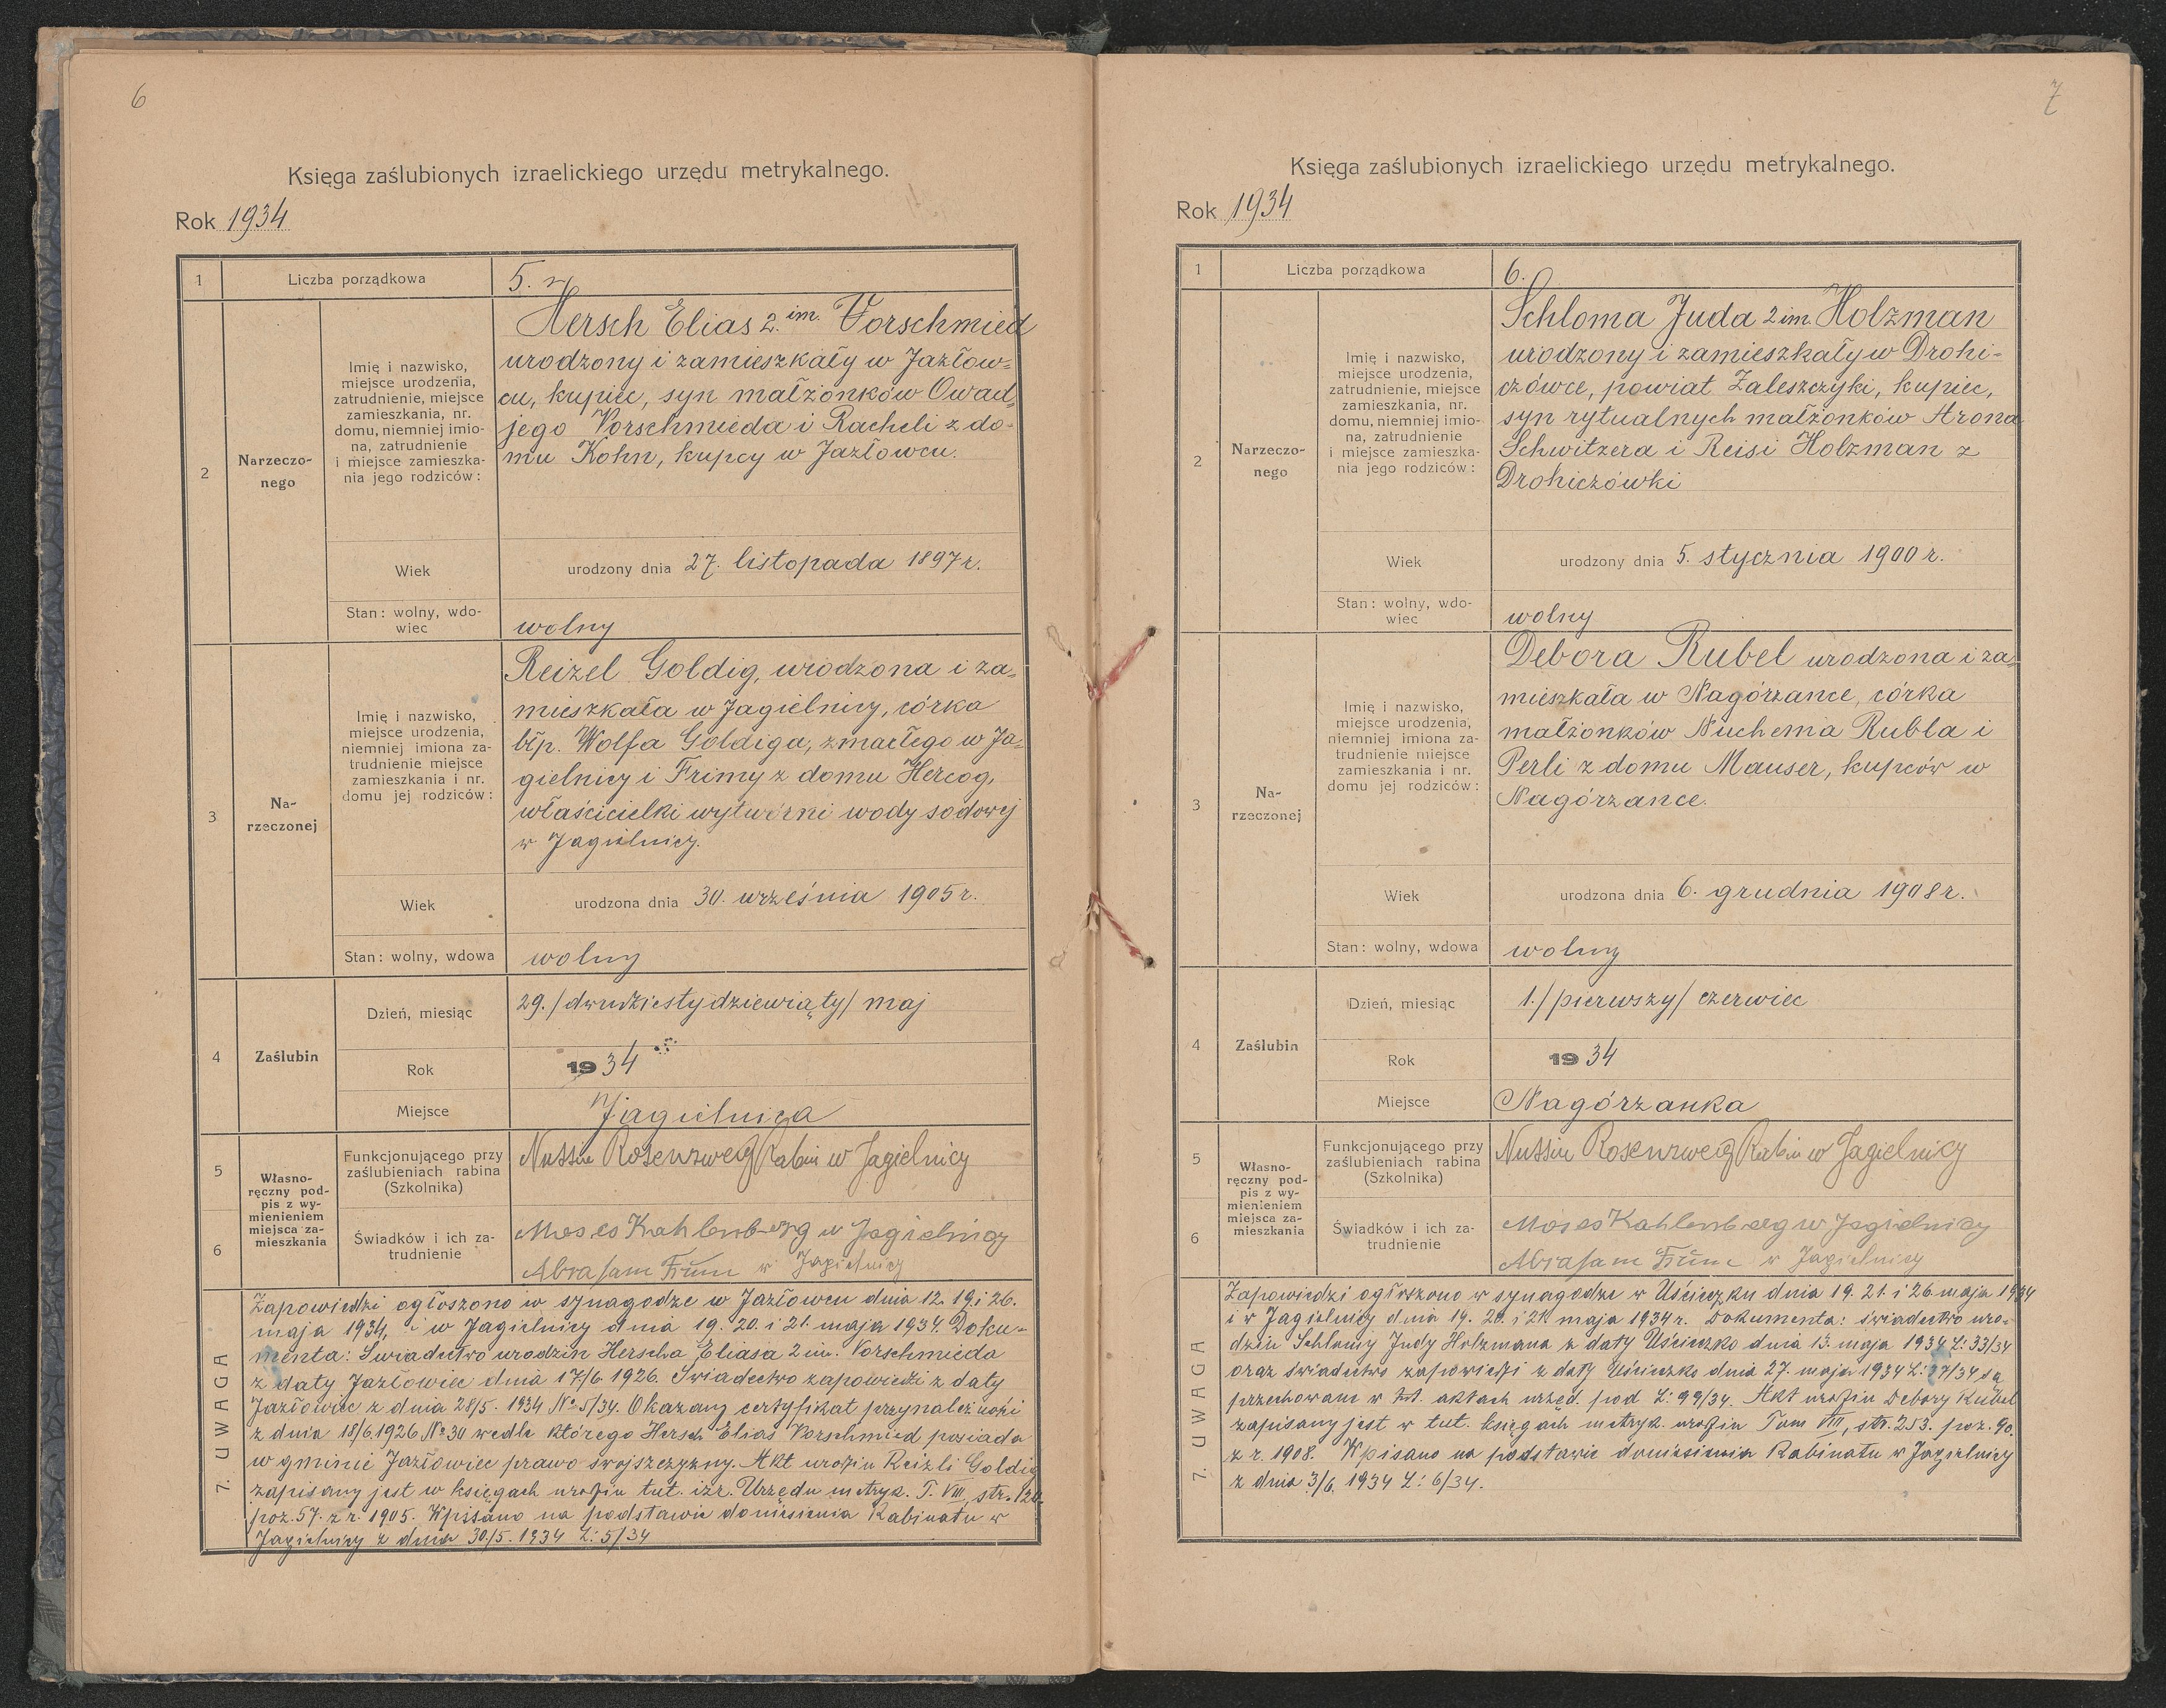 6
Księga zaślubionych izraelickiego urzędu metrykalnego.
Rok 1934
1
Liczba porządkowa
5.
2
Narzeczo-
nego
Imię i nazwisko,
miejsce urodzenia,
zatrudnienie, miejsce
zamieszkania, nr.
domu, niemniej imio-
na, zatrudnienie
i miejsce zamieszka-
nia jego rodziców:
Hersch Elias 2. im. Vorschmied
urodzony i zamieszkały w Jazłow=
cu, kupiec, syn małżonków Owad=
jego Vorschmieda i Racheli z do-
mu Kohn, kupcy w Jazłowcu.
Wiek
urodzony dnia 27. listopada 1897 r.
Stan: wolny, wdo-
wiec
wolny
3
Na-
rzeczonej
Imię i nazwisko,
miejsce urodzenia,
niemniej imiona za-
trudnienie miejsce
zamieszkania i nr.
domu jej rodziców:
Reizel Goldig, urodzona i za=
mieszkała w Jagielnicy, córka
błp. Wolfa Goldiga, zmarłego w Ja=
gielnicy i Frimy z domu Hercog,
właścicielki wytwórni wody sodowej
w Jagielnicy.
Wiek
urodzona dnia 30. września 1905 r.
Stan: wolny, wdowa
wolny
4
Zaślubin
Dzień, miesiąc
29. /dwudziesty dziewiąty/ maj
Rok
1934
Miejsce
Jagielnica
5
6
Własno-
ręczny pod-
pis z wy-
mienieniem
miejsca za-
mieszkania
Funkcjonującego przy
zaślubieniach rabina
(Szkolnika)
Nussin Rosenzweig Rabin w Jagielnicy
Świadków i ich za-
trudnienie
Moses Kahlenberg w Jagielnicy
Abraham w Jagielnicy
7. UWAGA
Zapowiedzi ogłoszono w synagodze w Jazłowcu dnia 12. 19. i 26.
maja 1934, i w Jagielnicy dnia 19. 20. i 21. maja 1934. Doku-
menta: Świadectwo urodzin Herscha Eliasa 2 im. Vorschmieda
z daty Jazłowiec dnia 17/6 1926. Świadectwo zapowiedzi z daty
Jazłowiec z dnia 28/5. 1934 No 5/34. Okazany certyfikat przynależności
z dnia 18/6. 1926 No 30 wedle którego Hersch Elias Vorschmied posiada
w gminie Jazłowiec prawo swojszczyzny. Akt urodzin Reizli Goldig
zapisany jest w księgach urodzin tut. izr. Urzędu metryk. T. VIII, str. 120.
poz. 57. z r. 1905. Wpisano na podstawie doniesienia Rabinatu w
Jagielnicy z dnia 30/5. 1934 L: 5/34
7
Księga zaślubionych izraelickiego urzędu metrykalnego.
Rok 1934
1
Liczba porządkowa
6.
2
Narzeczo-
nego
Imię i nazwisko,
miejsce urodzenia,
zatrudnienie, miejsce
zamieszkania, nr.
domu, niemniej imio-
na, zatrudnienie
i miejsce zamieszka-
nia jego rodziców:
Schloma Juda 2 im. Holzman
urodzony i zamieszkały w Drohi-
czówce, powiat Zaleszczyki, kupiec,
syn rytualnych małżonków Arona
Schwitzera i Reisi Holzman z
Drohiczówki
Wiek
urodzony dnia 5. stycznia 1900 r.
Stan: wolny, wdo-
wiec
wolny
3
Na-
rzeczonej
Imię i nazwisko,
miejsce urodzenia,
niemniej imiona za-
trudnienie miejsce
zamieszkania i nr.
domu jej rodziców:
Debora Rubel urodzona i za=
mieszkała w Nagórzance, córka
małżonków Nuchema Rubla i
Perli z domu Mauser, kupców w
Nagórzance.
Wiek
urodzona dnia 6. grudnia 1908 r.
Stan: wolny, wdowa
wolny
4
Zaślubin
Dzień, miesiąc
1. /pierwszy/ czerwiec
Rok
1934
Miejsce
Nagórzanka
5
6
Własno-
ręczny pod-
pis z wy-
mienieniem
miejsca za-
mieszkania
Funkcjonującego przy
zaślubieniach rabina
(Szkolnika)
Nussin Rosenzweig Rabin w Jagielnicy
Świadków i ich za-
trudnienie
Moses Kahlenberg w Jagielnicy
Abraham w Jagielnicy
7. UWAGA
Zapowiedzi ogłoszono w synagodze w Uścieczku dnia 19. 21. i 26 maja 1934
i w Jagielnicy dnia 19. 20. i 21 maja 1934 r. Dokumenta: świadectwo uro-
dzin Schlomy Judy Holzmana z daty Uścieczko dnia 13. maja 1934 L: 33/34
oraz świadectwo zapowiedzi z daty Uścieczko dnia 27. maja 1934 L: 37/34 są
przechowane w tut. aktach urzęd. pod L: 99/34. Akt urodzin Debory Rubel
zapisany jest w tut. księgach metryk. urodzin Tom VIII, str. 253. poz. 90.
z r. 1908. Wpisano na podstawie doniesienia Rabinatu w Jagielnicy
z dnia 3/6. 1934 L: 6/34.